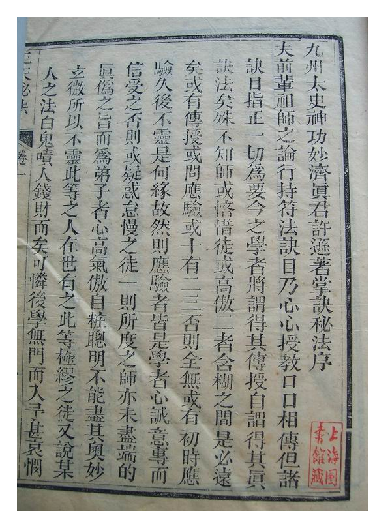 九州太史神功妙濟眞君許遜著掌訣秘法序
夫前輩祖師之諭行持符法訣目乃心心授教口口相傳但諸
訣目指正一切爲要今之學者將謂得其傳授自謂得其眞
訣法矣殊不知師或恡惜徒或高傲二者含糊之間是必遠
矣或有傳授或問應驗或十有一二否則全無或有初時應
驗久後不靈是何緣故然則應驗者皆是學者心誠意專而
信受之否則或疑惑怠慢之徒一則所度之師亦未盡端的
眞僞之旨而爲弟子者心高氣傲自粧聰明不能盡其奥妙
玄微所以不靈此等之人在世有之此等撞繆之徒又說某
人之法百鬼嘖人錢財而矣可憐後學無門而入寻甚哀憫
卷一
上海图
書館藏